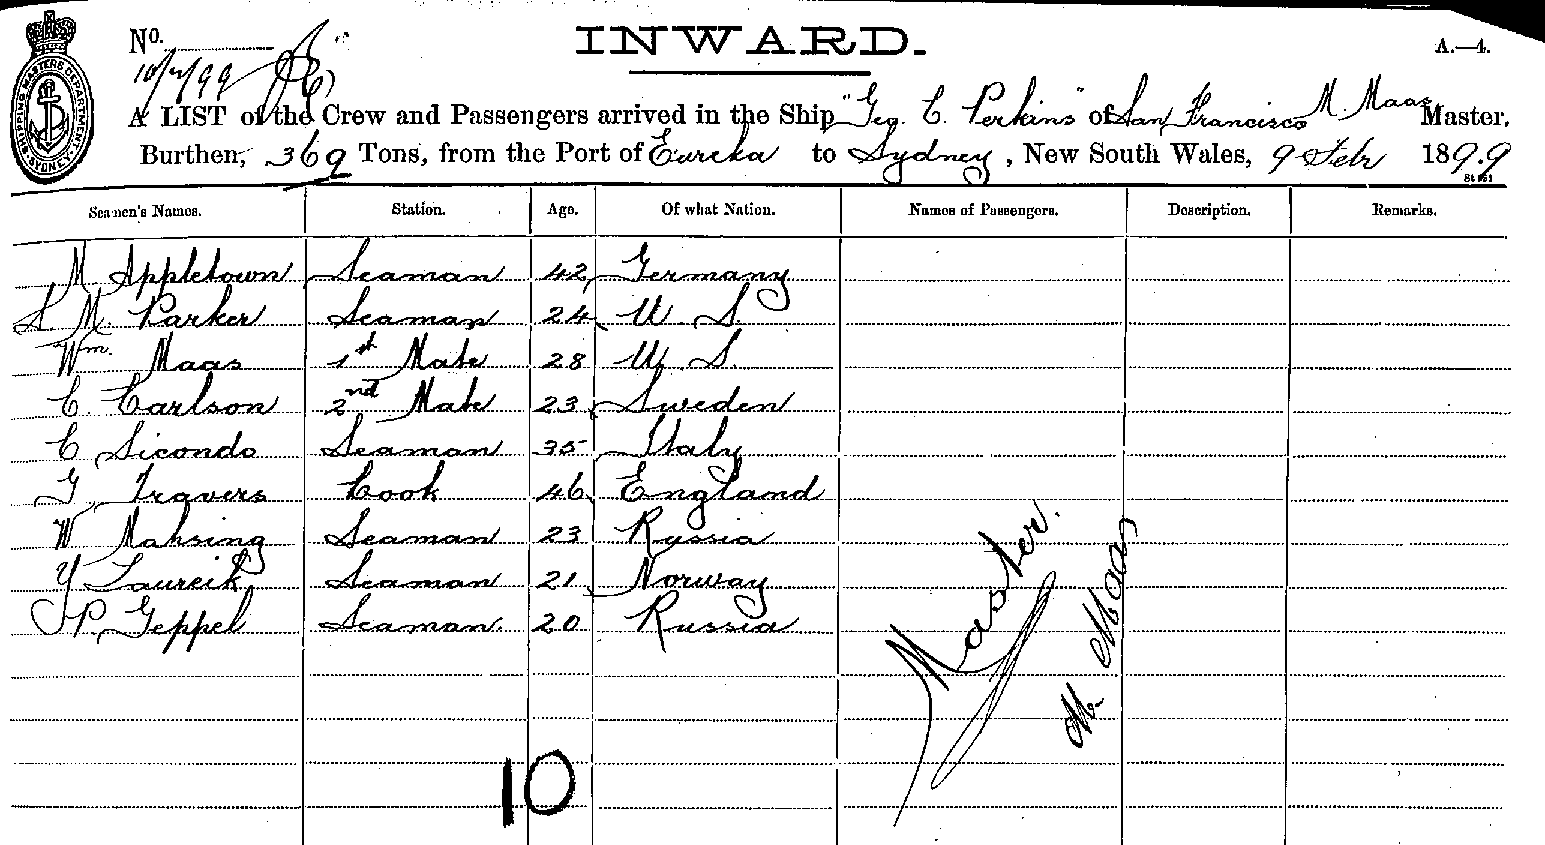 No.
INWARD.
A.—4.
10/2/99
A LIST of the Crew and Passengers arrived in the Ship "Geo. C. Perkins" of San Francisco M. Maas Master,
Burthen, 369 Tons, from the Port of Eureka to Sydney, New South Wales, 9 Febr 1899
SHIPPING MASTERS DEPARTMENT SYDNEY
Seamen's Names. Station. Age. Of what Nation. Names of Passengers. Description. Remarks.
M. Appletown Seaman 42 Germany
S M. Parker Seaman 24 U. S.
Wm. Maas 1st Mate 28 U. S.
C. Carlson 2nd Mate 23 Sweden
C Sicondo Seaman 35 Italy
G Travers Cook 46 England
W Nahsing Seaman 23 Russia
Y Laureik Seaman 21 Norway
P. Geppel Seaman. 20 Russia
Master.
M. Maas
10